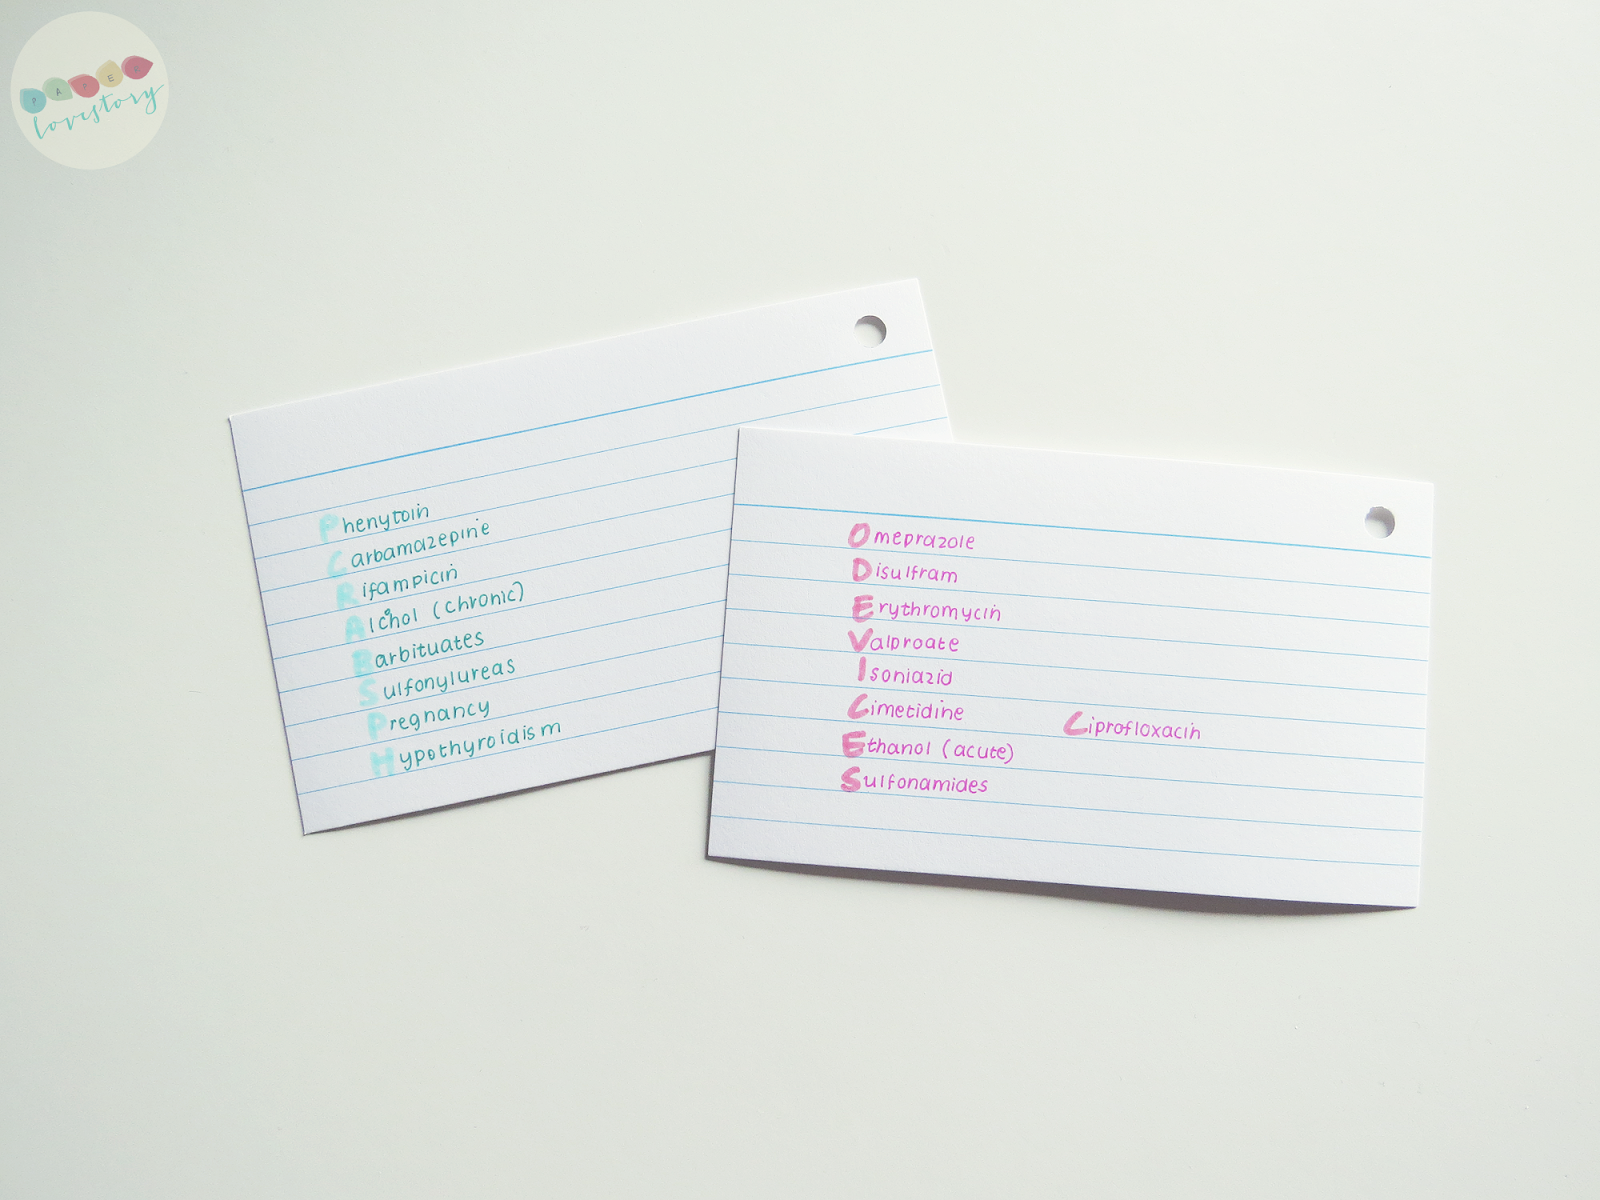 PAPER
lovestory
Phenytoin
Carbamazepine
Rifampicin
Alcohol (chronic)
Barbituates
Sulfonylureas
Pregnancy
Hypothyroidism
Omeprazole
Disulfram
Erythromycin
Valproate
Isoniazid
Cimetidine Ciprofloxacin
Ethanol (acute)
Sulfonamides